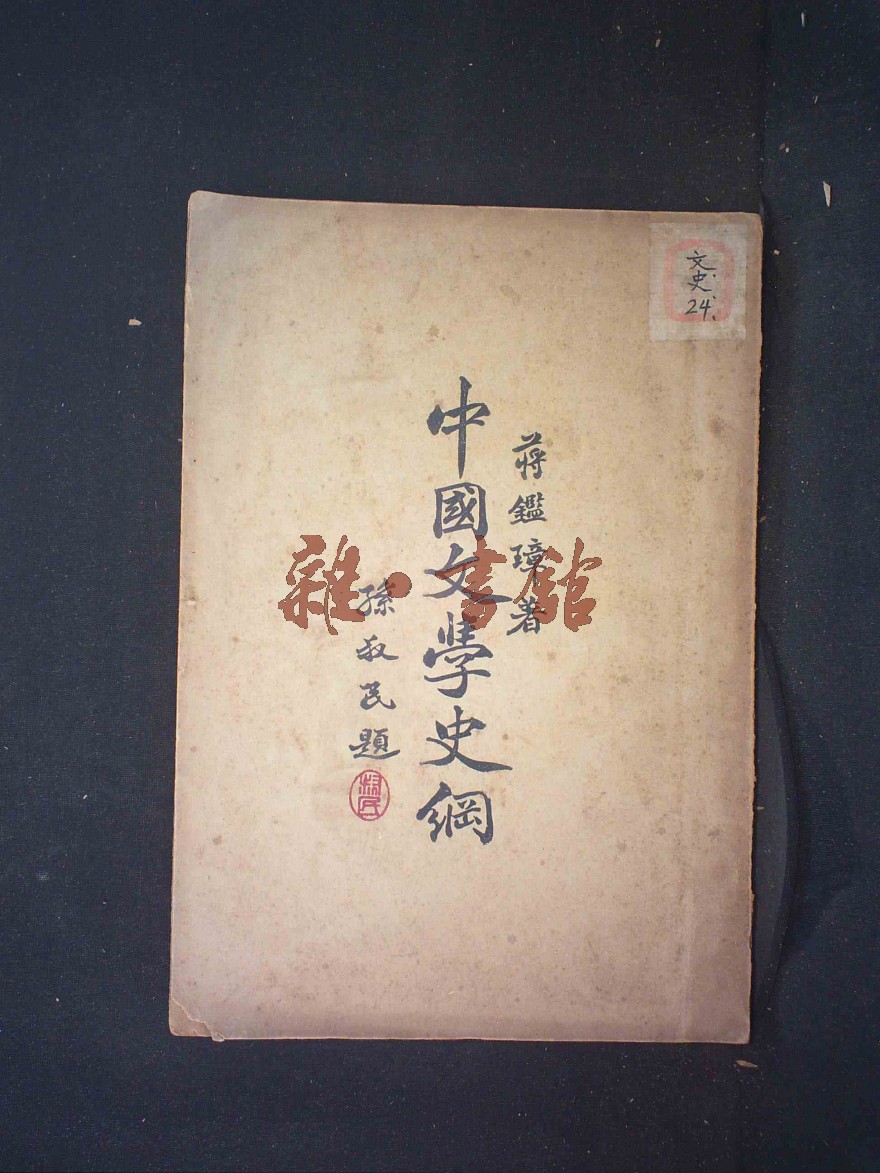 文史
24.
蒋鑑璋著
中國文學史綱
孫叔民題
叔民
雜·書館